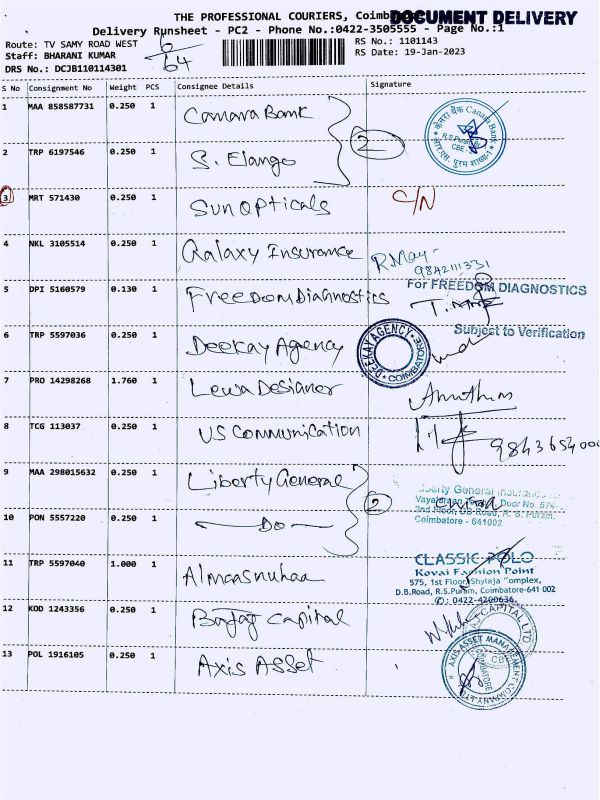 THE PROFESSIONAL COURIERS, Coimba
DOCUMENT DELIVERY
Delivery Runsheet - PC2 - Phone No.:0422-3505555 - Page No.:1
Route: TV SAMY ROAD WEST
6/64
RS No.: 1101143
Staff: BHARANI KUMAR
RS Date: 19-Jan-2023
DRS No.: DCJB110114301
S No Consignment No Weight PCS Consignee Details Signature
1 MAA 858587731 0.250 1 Canara Bank
केनरा बैंक Canara Bank
2
2 TRP 6197546 0.250 1 S. Elango
3 MRT 571430 0.250 1 Sun Opticals C/N
4 NKL 3105514 0.250 1 Galaxy Insurance
9842111331
5 DPI 5160579 0.130 1 Freedom Diagnostics
For FREEDOM DIAGNOSTICS
Subject to Verification
6 TRP 5597036 0.250 1 Deekay Agency
DEEKAY AGENCY COIMBATORE
7 PRO 14298268 1.760 1 Lewa Designer
8 TCG 113037 0.250 1 US Communication
9 MAA 298015632 0.250 1 Liberty General
2
10 PON 5557220 0.250 1 — Do —
2nd Floor, DB Road, R. S. Puram,
Coimbatore - 641002
11 TRP 5597040 1.000 1 Almaasnuhaa
CLASSIC POLO
Kovai Fashion Point
575, 1st Floor, Shylaja Complex,
D.B.Road, R.S.Puram, Coimbatore-641 002
✆: 0422-4200636
12 KOD 1243356 0.250 1 Bajaj Capital
CAPITAL LTD
13 POL 1916105 0.250 1 Axis Asset
AXIS ASSET MANAGEMENT COMPANY LTD COIMBATORE